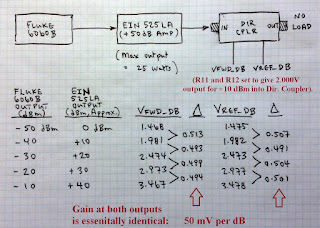 FLUKE
6060B
EIN 525LA
(+50dB AMP)
IN DIR OUT
CPLR
NO
LOAD
(Max output
= 25 watts)
VFWD_DB VREF_DB
(R11 and R12 set to give 2.000V
output for +10 dBm into Dir. Coupler).
FLUKE
6060B
OUTPUT
(dBm)
EIN
525LA
OUTPUT
(dBm, Approx)
VFWD_DB Δ VREF_DB Δ
-50 dBm 0 dBm 1.468 1.475
0.513 0.507
-40 +10 1.981 1.982
0.493 0.491
-30 +20 2.474 2.473
0.499 0.504
-20 +30 2.973 2.977
0.494 0.501
-10 +40 3.467 3.478
Gain at both outputs
is essenitally identical: 50 mV per dB